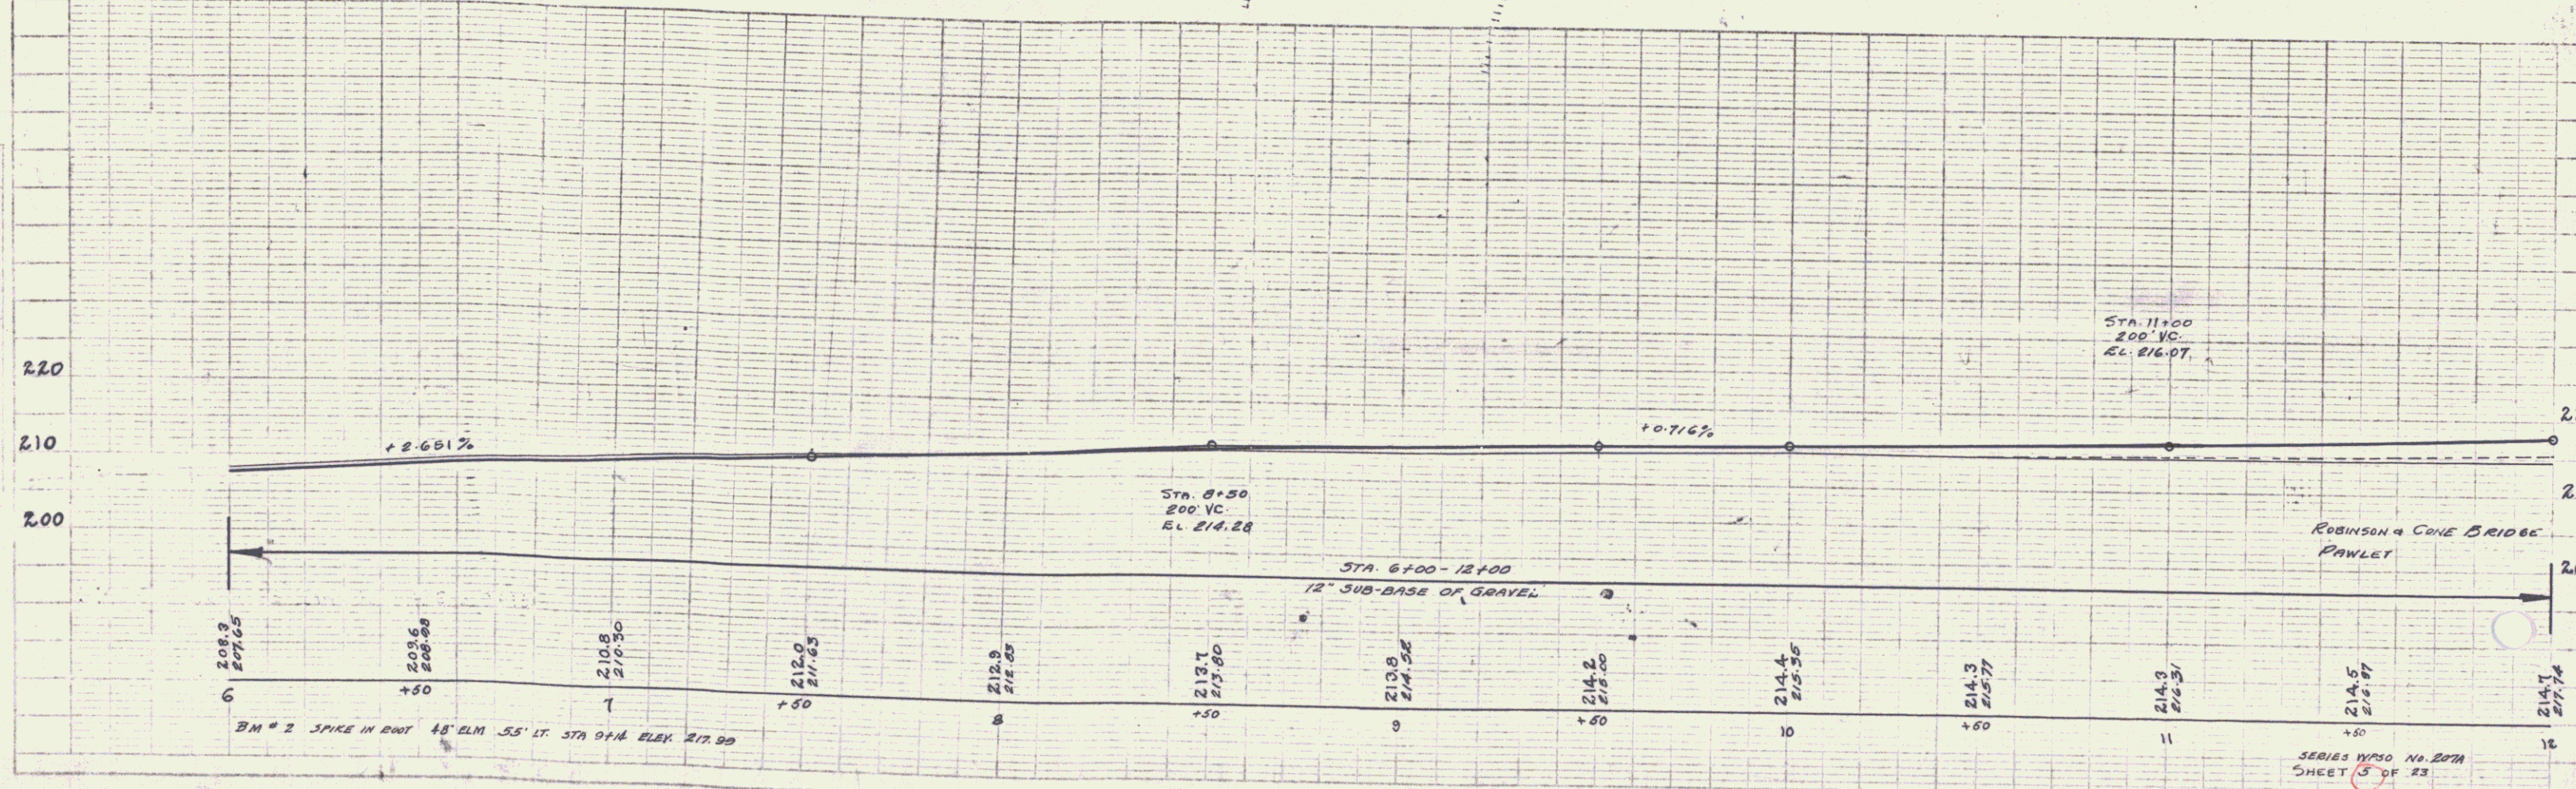 STA. 11+00
200' VC.
EL. 216.07
220
210
200
+2.651%
+0.716%
STA. 8+50
200' VC.
EL. 214.28
ROBINSON & CONE BRIDGE
PAWLET
STA. 6+00 - 12+00
12" SUB-BASE OF GRAVEL
208.3
207.65
209.6
208.98
210.8
210.30
212.0
211.63
212.9
212.83
213.7
213.80
213.8
214.52
214.2
215.00
214.4
215.35
214.3
215.77
214.3
216.31
214.5
216.97
214.7
217.74
6 +50 7 +50 8 +50 9 +50 10 +50 11 +50 12
BM # 2 SPIKE IN ROOT 48" ELM 55' LT. STA 9+14 ELEV. 217.99
SERIES WPSO NO. 207A
SHEET 5 OF 23